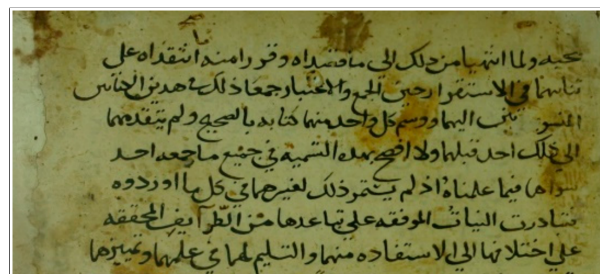 صحيحه ولما انتهيا من ذلك الى ما قصداه وقررا منه انتقداه على
تناهما في الاستقرار حين الجمع والاعتبار جمعا ذلك في هدين الكتابين
المنسوبين اليهما ووسم كل واحد منهما كتابه بالصحيح ولم يتقدمهما
الى ذلك احد قبلهما ولا افصح بهده التسميه في جميع ما جمعه احد
سواهما فيما علمناه اذ لم يستمر ذلك لغيرهما في كل ما اوردوه
فتبادرت النيات الموفقه على تباعدها من الطوايف المحققه
على اختلافها الى الاستفاده منهما والتسليم لهما في علمهما وتمييزهما